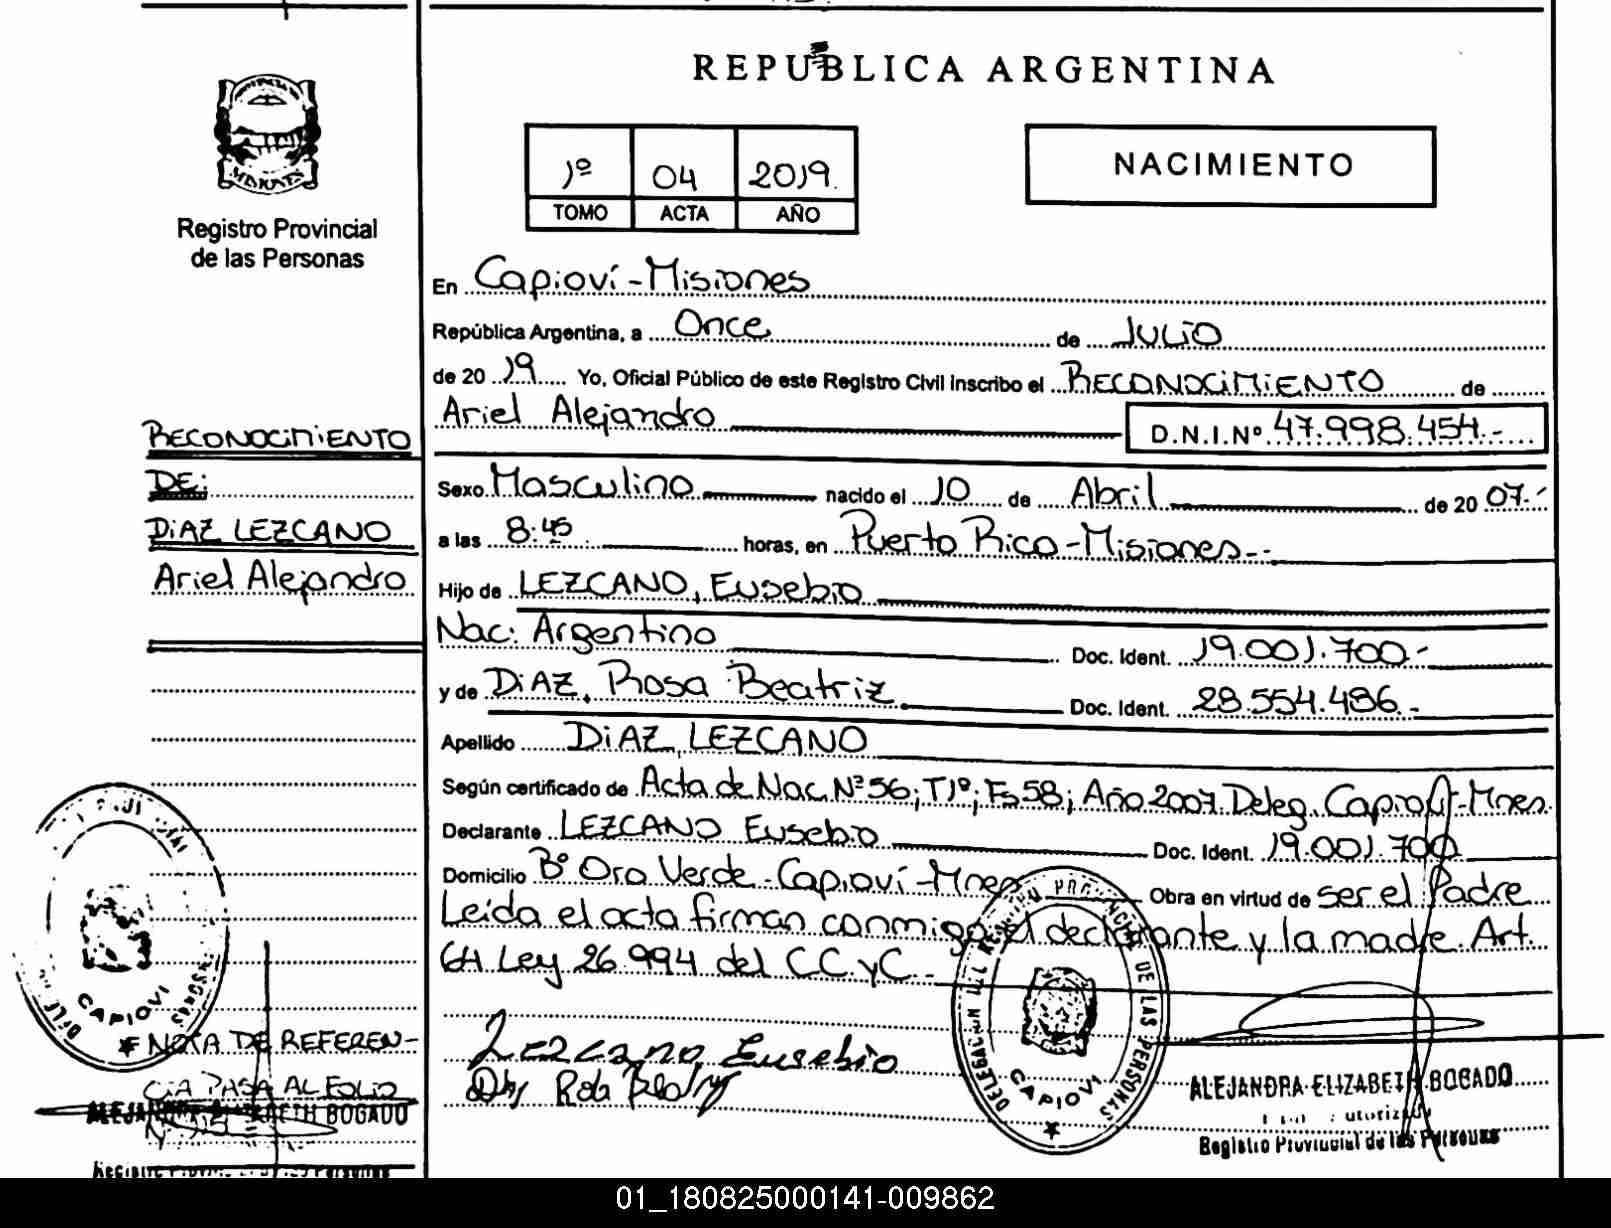 REPUBLICA ARGENTINA
MISIONES
Registro Provincial
de las Personas
1º 04 2019.
TOMO ACTA AÑO
NACIMIENTO
En Capioví - Misiones
República Argentina, a Once de JULIO
de 20 19 Yo, Oficial Público de este Registro Civil inscribo el RECONOCIMIENTO de
Ariel Alejandro D.N.I.Nº 47.998.454.-
Sexo Masculino nacido el 10 de Abril de 20 07.-
a las 8:45 horas, en Puerto Rico - Misiones.-
Hijo de LEZCANO, Eusebio
Nac: Argentino Doc. Ident. 19.001.700.-
y de DiAZ, Rosa Beatriz Doc. Ident. 28.554.486.-
Apellido DiAZ LEZCANO
Según certificado de Acta de Nac. Nº 56; T1º; Fs 58; Año 2007. Deleg. Capioví - Mnes.
Declarante LEZCANO Eusebio Doc. Ident. 19.001.700
Domicilio Bº Oro Verde - Capioví - Mnes Obra en virtud de ser el Padre
Leida el acta firman conmigo el declarante y la madre. Art.
64 Ley 26.994 del CC.yC.
Lezcano Eusebio
ALEJANDRA ELIZABETH BOGADO
Registro Provincial de las Personas
DELEGACION REGISTRO PROVINCIAL DE LAS PERSONAS
CAPIOVI
RECONOCIMIENTO
DE:
DiAZ LEZCANO
Ariel Alejandro
CAPIOVI
NOTA DE REFEREN-
CIA PASA AL FOLIO
ALEJANDRA ELIZABETH BOGADO
Registro Provincial de las Personas
01_180825000141-009862